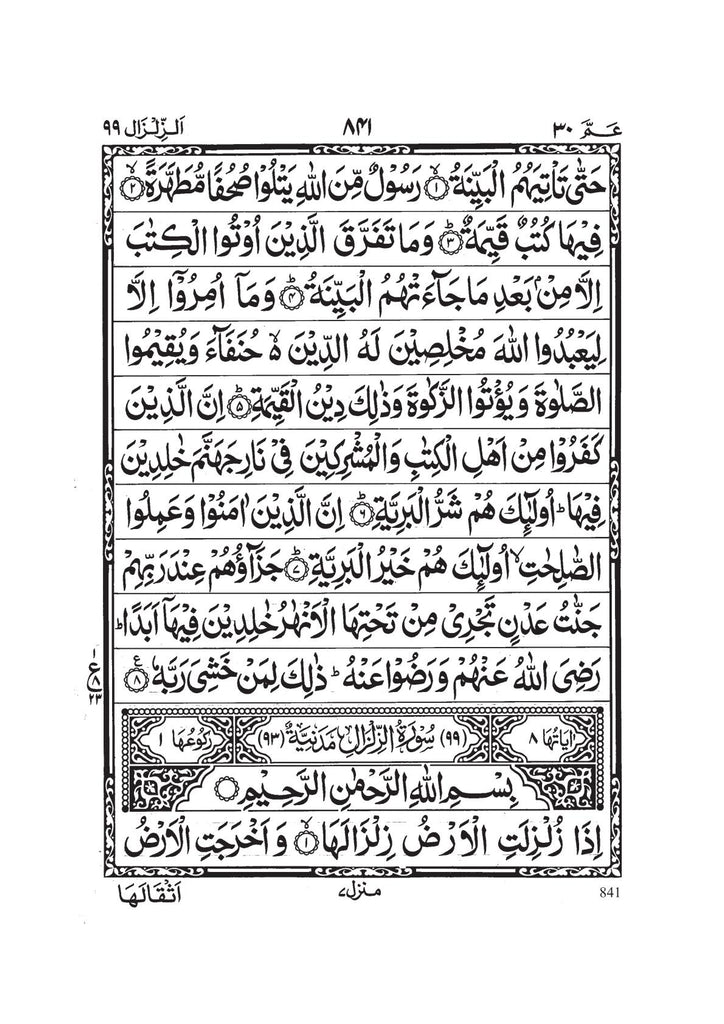 عَمَّ ۳۰ ۸۴۱ اَلزِّلْزَال ۹۹
حَتّٰى تَاْتِيَهُمُ الْبَيِّنَةُ ۙ﴿۱﴾ رَسُوْلٌ مِّنَ اللّٰهِ يَتْلُوْا صُحُفًا مُّطَهَّرَةً ۙ﴿۲﴾
فِيْهَا كُتُبٌ قَيِّمَةٌ ؕ﴿۳﴾ وَمَا تَفَرَّقَ الَّذِيْنَ اُوْتُوا الْكِتٰبَ
اِلَّا مِنْۢ بَعْدِ مَا جَآءَتْهُمُ الْبَيِّنَةُ ؕ﴿۴﴾ وَمَآ اُمِرُوْۤا اِلَّا
لِيَعْبُدُوا اللّٰهَ مُخْلِصِيْنَ لَهُ الدِّيْنَ ۙ۬ حُنَفَآءَ وَيُقِيْمُوا
الصَّلٰوةَ وَيُؤْتُوا الزَّكٰوةَ وَذٰلِكَ دِيْنُ الْقَيِّمَةِ ؕ﴿۵﴾ اِنَّ الَّذِيْنَ
كَفَرُوْا مِنْ اَهْلِ الْكِتٰبِ وَالْمُشْرِكِيْنَ فِيْ نَارِ جَهَنَّمَ خٰلِدِيْنَ
فِيْهَا ؕ اُولٰٓئِكَ هُمْ شَرُّ الْبَرِيَّةِ ؕ﴿۶﴾ اِنَّ الَّذِيْنَ اٰمَنُوْا وَعَمِلُوا
الصّٰلِحٰتِ ۙ اُولٰٓئِكَ هُمْ خَيْرُ الْبَرِيَّةِ ؕ﴿۷﴾ جَزَآؤُهُمْ عِنْدَ رَبِّهِمْ
جَنّٰتُ عَدْنٍ تَجْرِيْ مِنْ تَحْتِهَا الْاَنْهٰرُ خٰلِدِيْنَ فِيْهَآ اَبَدًا ؕ
رَضِيَ اللّٰهُ عَنْهُمْ وَرَضُوْا عَنْهُ ؕ ذٰلِكَ لِمَنْ خَشِيَ رَبَّهٗ ﴿۸﴾
۱ ع ۸ ۲۳
اٰيَاتُهَا ۸ (۹۹) سُوْرَةُ الزِّلْزَالِ مَدَنِيَّةٌ (۹۳) رُكُوْعُهَا ۱
بِسْمِ اللّٰهِ الرَّحْمٰنِ الرَّحِيْمِ
اِذَا زُلْزِلَتِ الْاَرْضُ زِلْزَالَهَا ۙ﴿۱﴾ وَاَخْرَجَتِ الْاَرْضُ
841 منزل۷ اَثْقَالَهَا